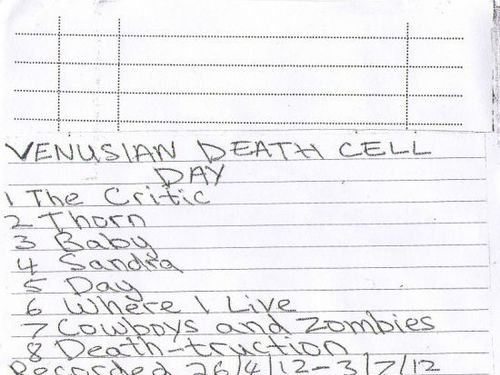 VENUSIAN DEATH CELL
DAY
1 The Critic
2 Thorn
3 Baby
4 Sandra
5 Day
6 Where I Live
7 Cowboys and Zombies
8 Death-truction
Recorded 26/4/12-3/7/12